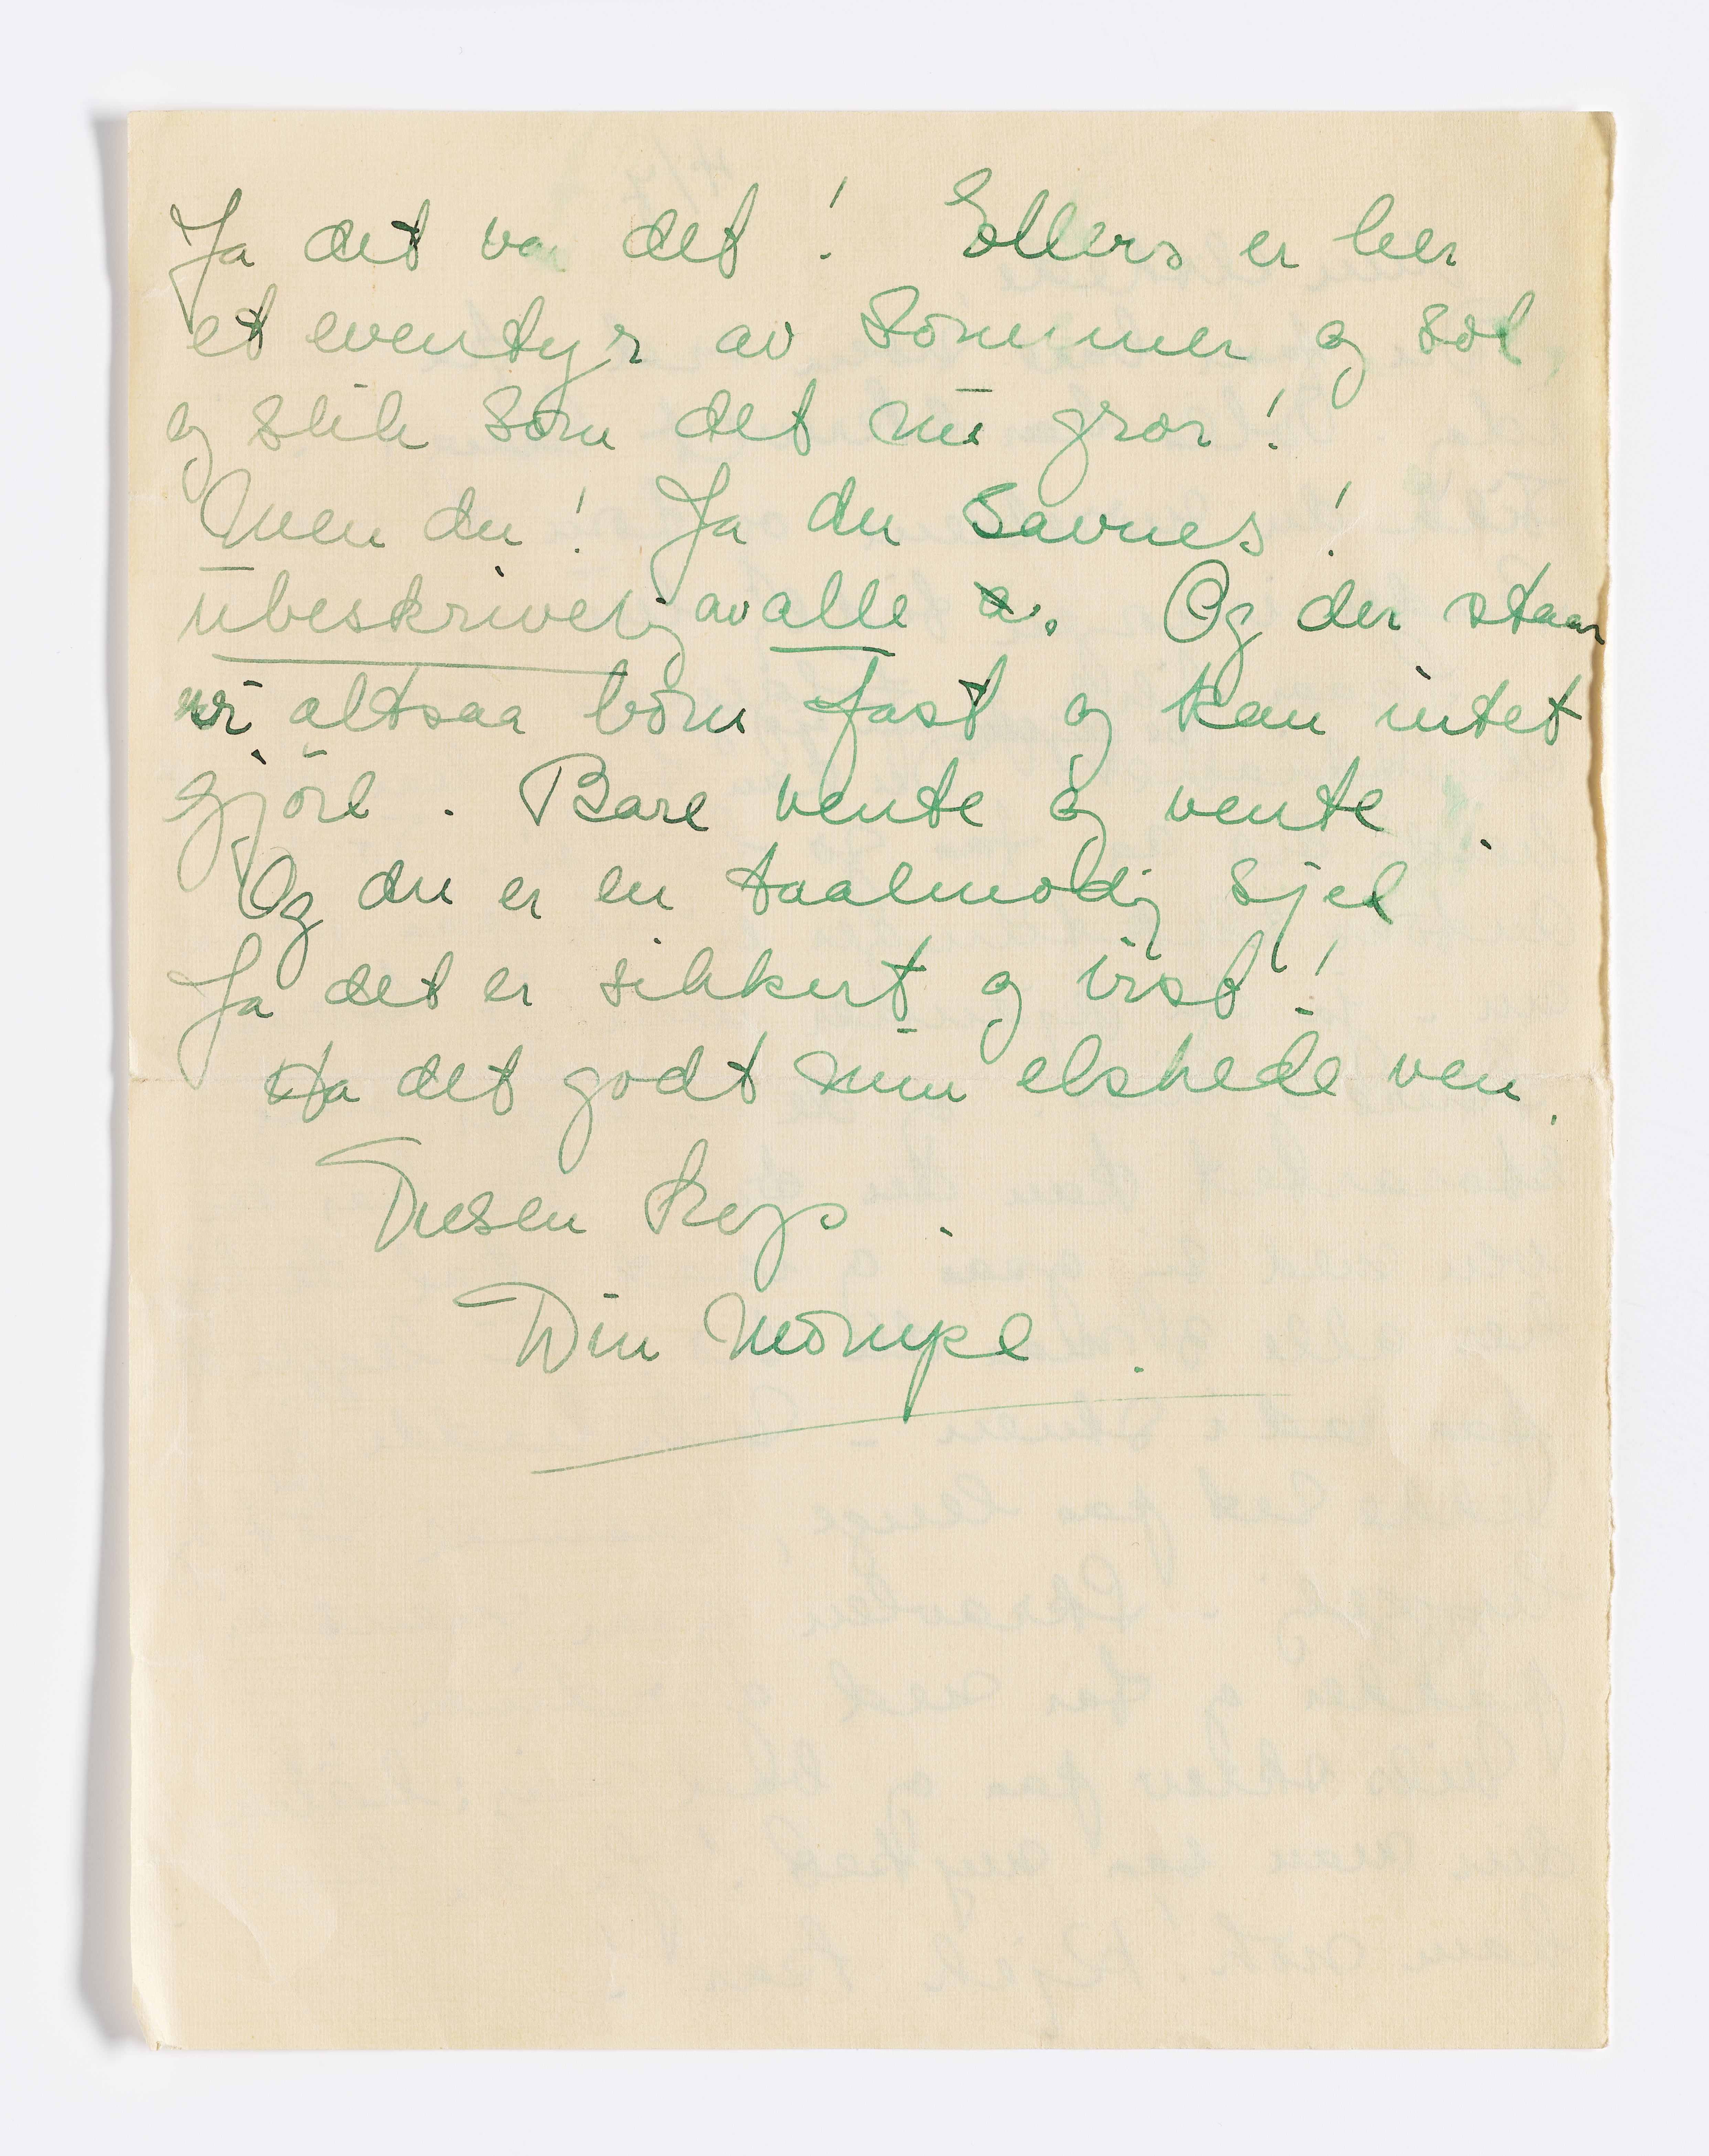 Ja det var det! Ellers er her
et eventyr av sommer og sol,
og slik som det nu gror!
Men du! Ja du savnes!
ubeskrivelig av alle. Og der staar
vi altsaa bom fast og kan intet
gjöre. Bare vente og vente.
Og du er en taalmodig sjel
Ja det er sikkert og visst!
Ha det godt min elskede ven.
Tusen kys.
Din Mompe.